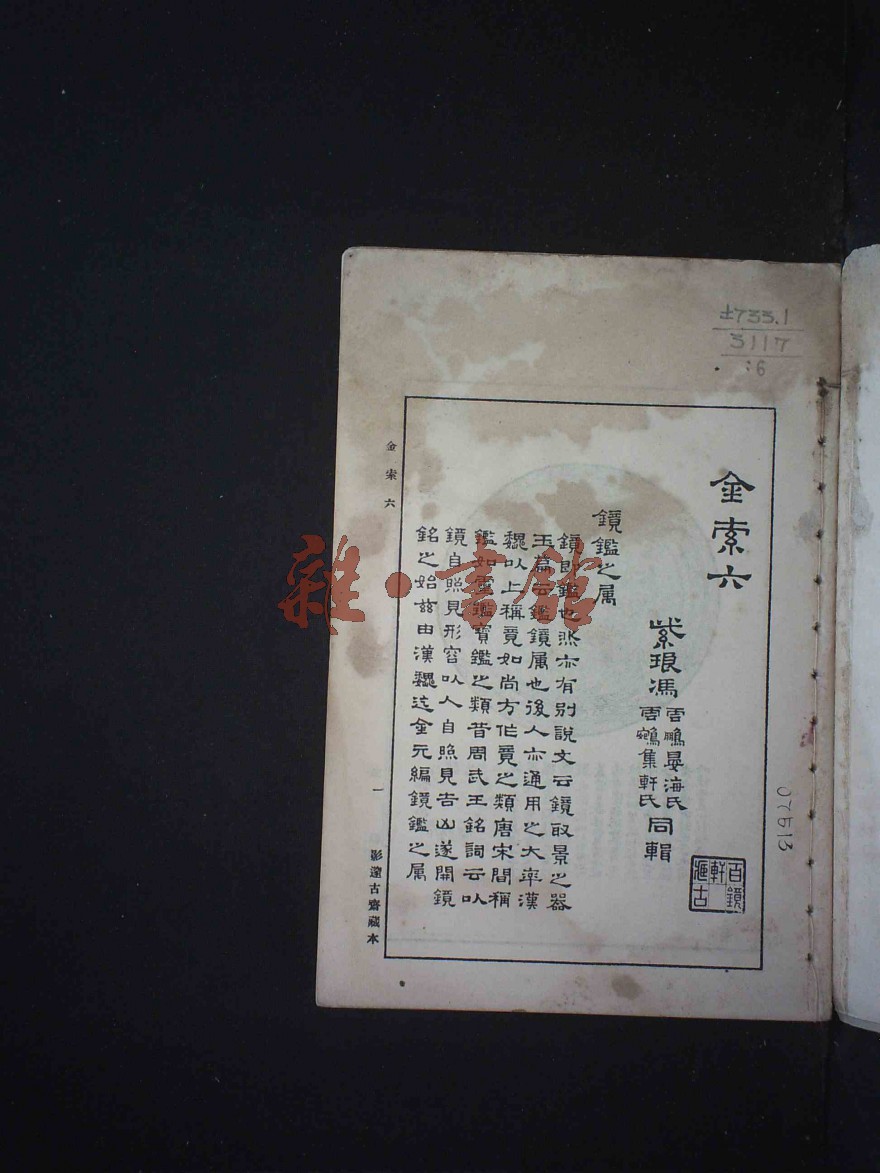 金索六
紫琅馮
雲鵬晏海氏
雲鵷集軒氏
同輯
鏡鑑之属
鏡即鑑也然亦有别說文云鏡取景之器
玉篇云鑑鏡属也後人亦通用之大率漢
魏以上稱竟如尚方作竟之類唐宋間稱
鑑如靈鑑寳鑑之類昔周武王銘詞云以
鏡自照見形容以人自照見吉凶遂開鏡
銘之始茲由漢魏迄金元編鏡鑑之属
百鏡軒滙古
金索六
一
影邃古齋藏本
±733.1
3117
:6
07513
雜·書館